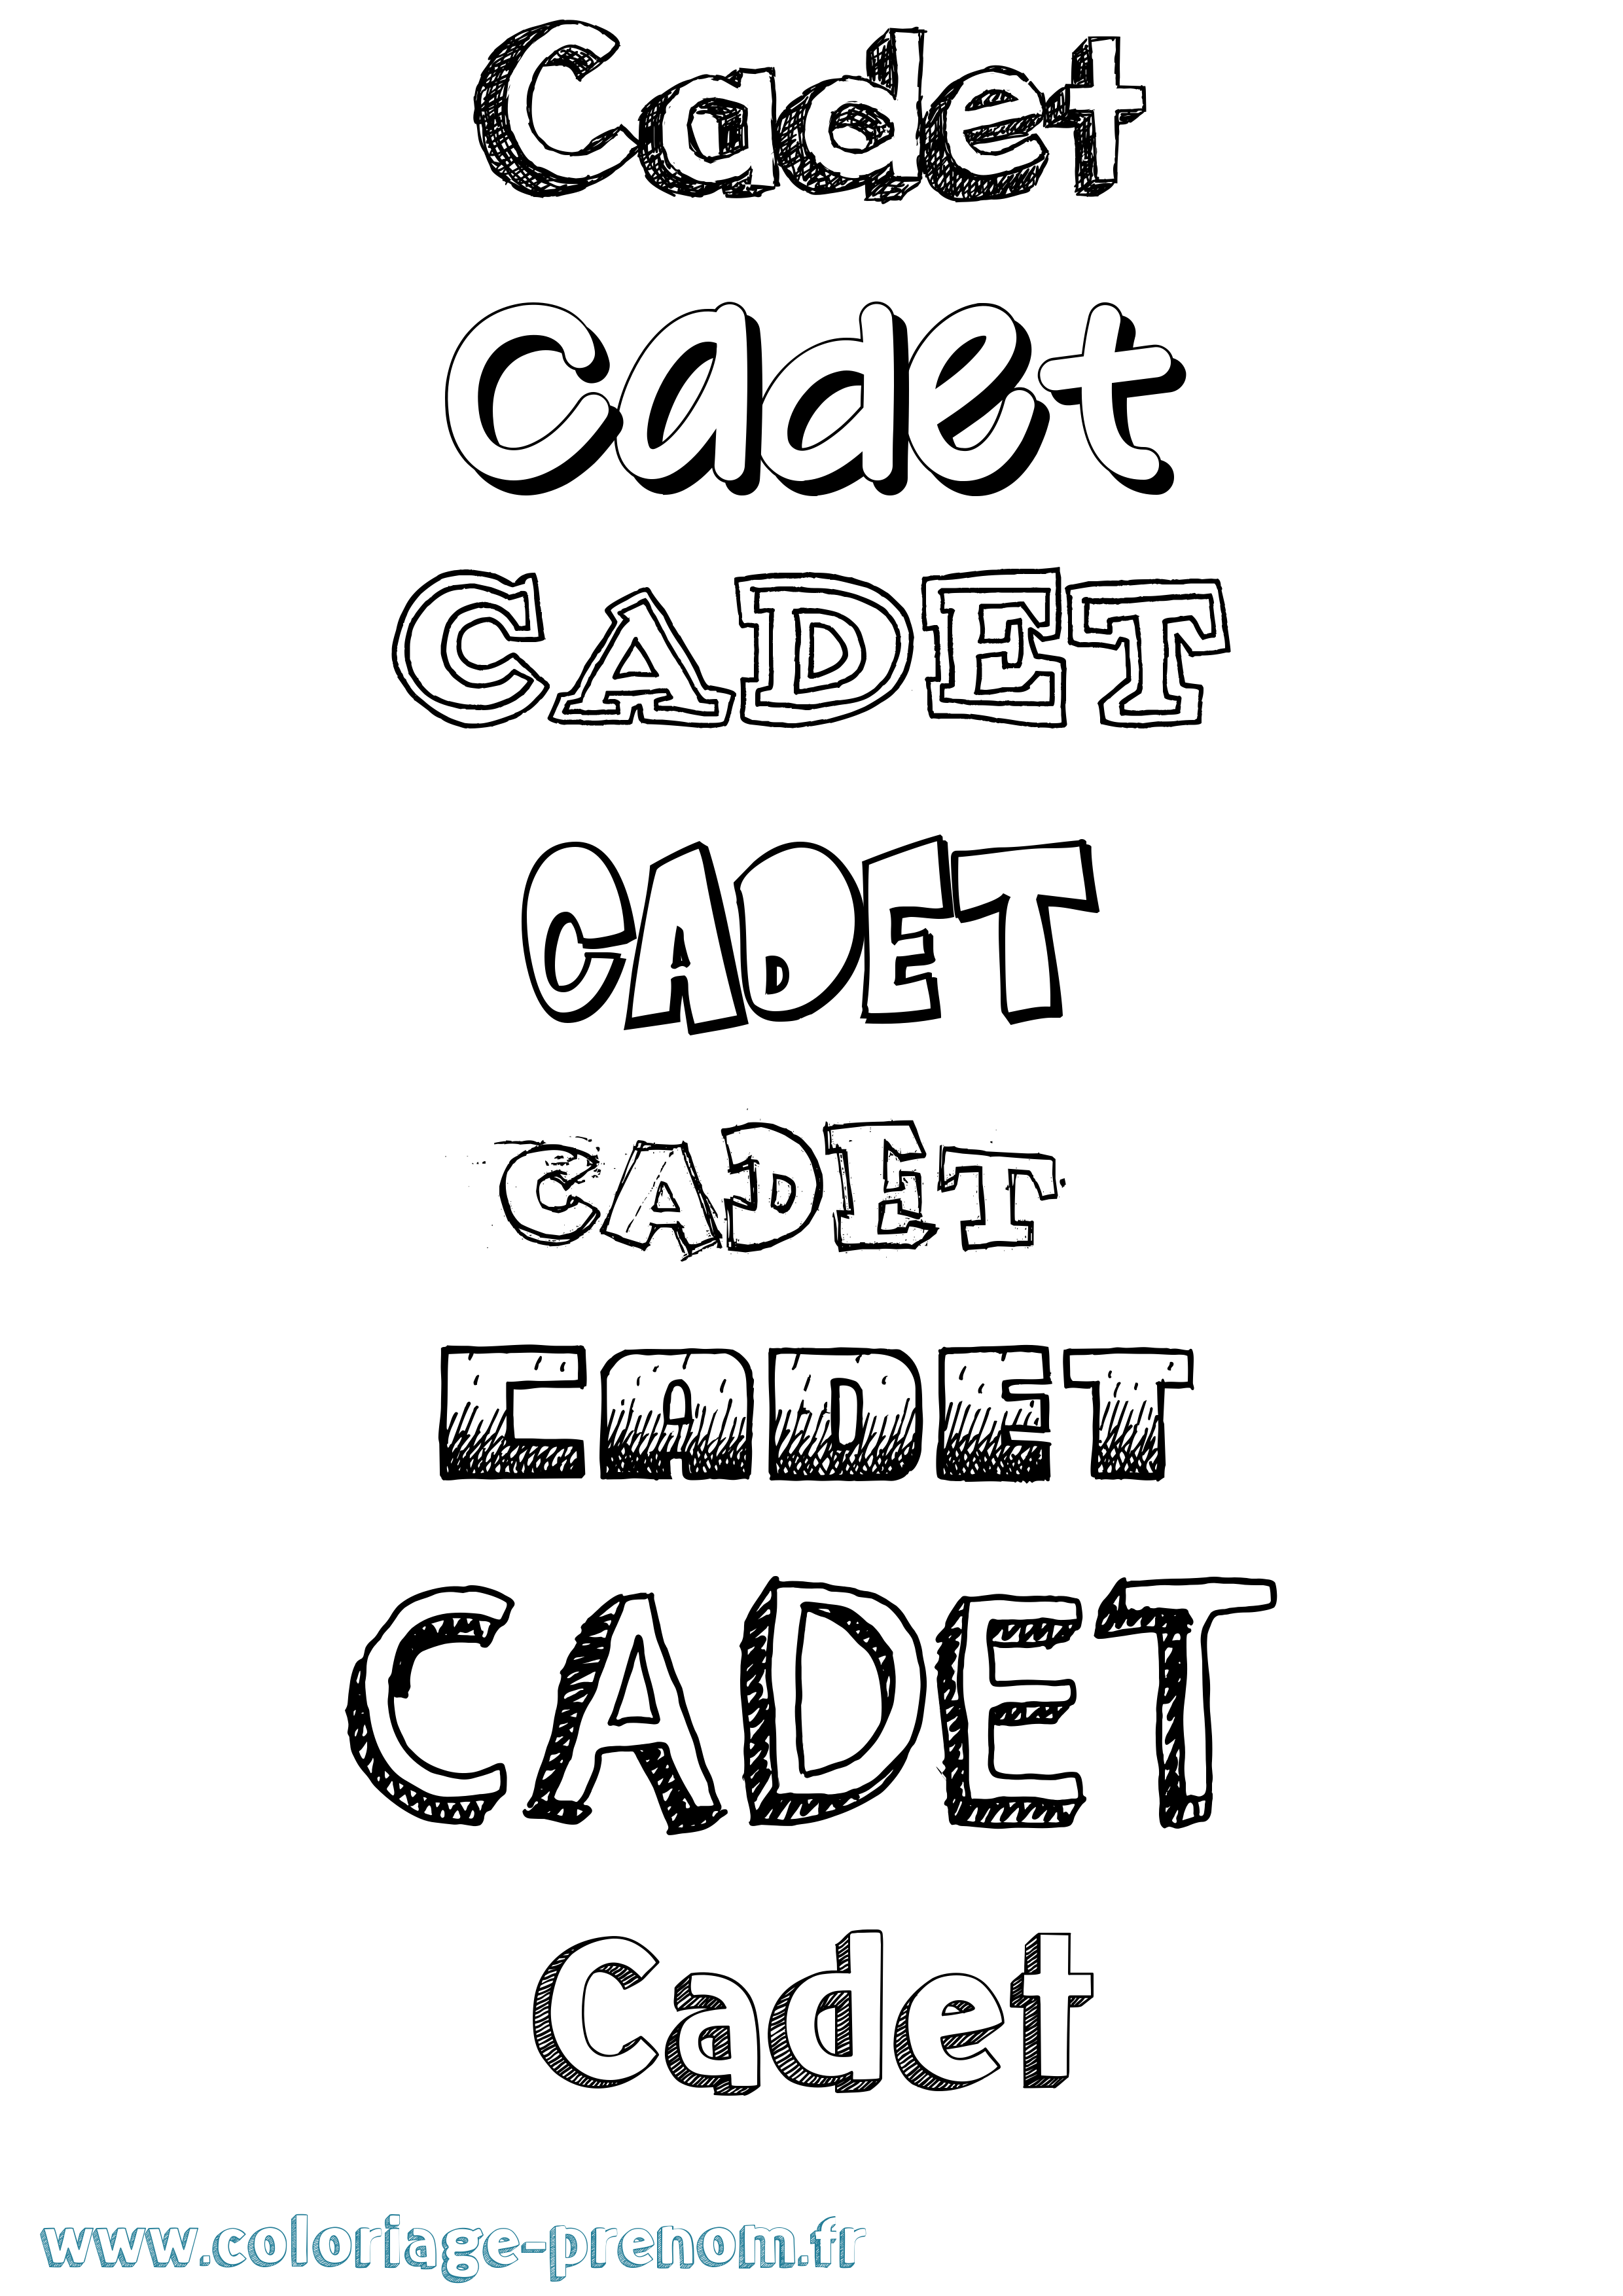 Cadet
Cadet
CADET
CADET
CADET
CADET
CADET
Cadet
www.coloriage-prenom.fr